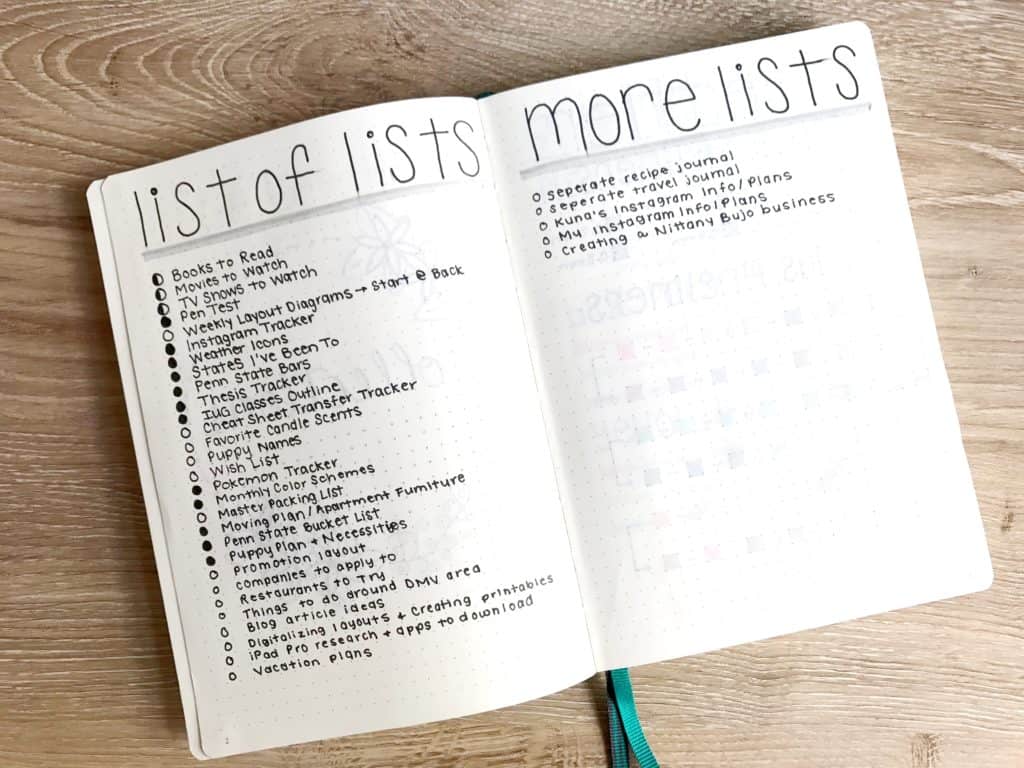 list of lists
Books to Read
Movies to Watch
TV Shows to Watch
Pen Test
Weekly Layout Diagrams → Start @ Back
Instagram Tracker
Weather Icons
States I've Been To
Penn State Bars
Thesis Tracker
IUG Classes Outline
Cheat Sheet Transfer Tracker
Favorite Candle Scents
Puppy Names
Wish List
Pokemon Tracker
Monthly Color Schemes
Master Packing List
Moving Plan/Apartment Furniture
Penn State Bucket List
Puppy Plan + Necessities
Promotion layout
companies to apply to
Restaurants to Try
Things to do around DMV area
Blog article ideas
Digitalizing layouts + Creating printables
iPad Pro research + apps to download
Vacation plans
more lists
seperate recipe journal
seperate travel journal
Kuna's Instagram Info/Plans
My Instagram Info/Plans
Creating a Nittany Bujo business